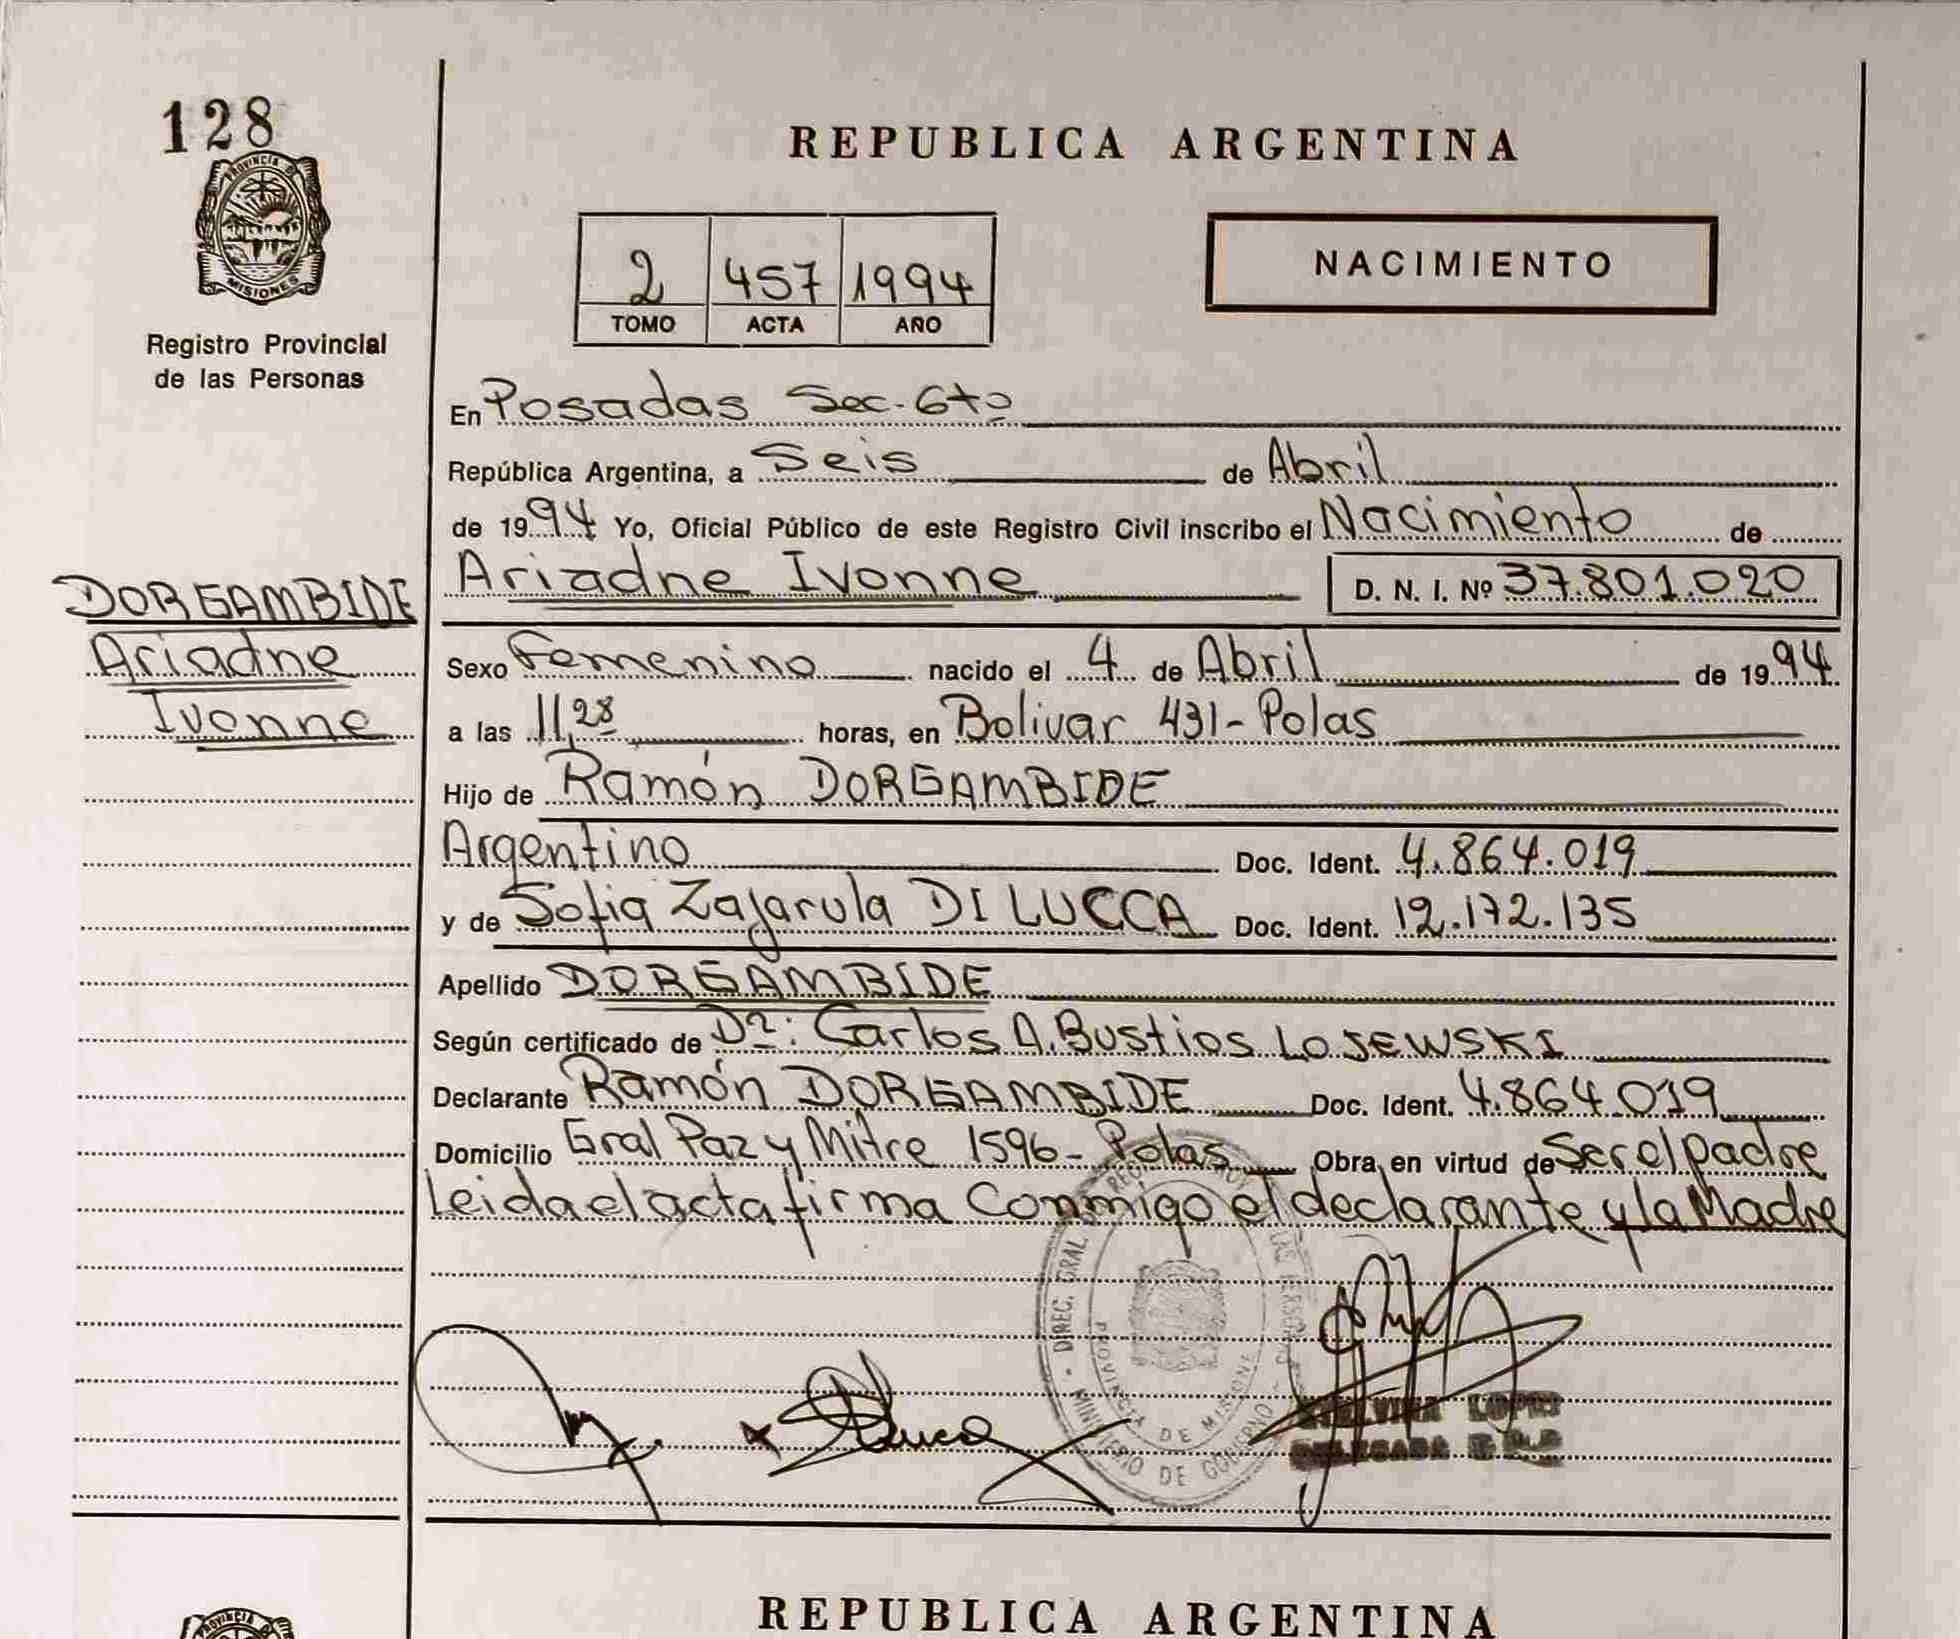 128
PROVINCIA DE
MISIONES
Registro Provincial
de las Personas
DORGAMBIDE
Ariadne
Ivonne
REPUBLICA ARGENTINA
2 457 1994
TOMO ACTA AÑO
NACIMIENTO
En Posadas Sec. 6ta
República Argentina, a Seis de Abril
de 1994 Yo, Oficial Público de este Registro Civil inscribo el Nacimiento de
Ariadne Ivonne D. N. I. Nº 37.801.020
Sexo Femenino nacido el 4 de Abril de 1994
a las 11,28 horas, en Bolivar 431 - Pdas
Hijo de Ramón DORGAMBIDE
Argentino Doc. Ident. 4.864.019
y de Sofia Zajarula DI LUCCA Doc. Ident. 12.172.135
Apellido DORGAMBIDE
Según certificado de Dr: Carlos A. Bustios LOJEWSKI
Declarante Ramón DORGAMBIDE Doc. Ident. 4.864.019
Domicilio Gral Paz y Mitre 1596 - Pdas Obra en virtud de Ser el padre
Leida el acta firma Conmigo el declarante y la Madre
DIREC. GRAL
PROVINCIA DE MISIONES
MINISTERIO DE GOBIERNO
REPUBLICA ARGENTINA
PROVINCIA